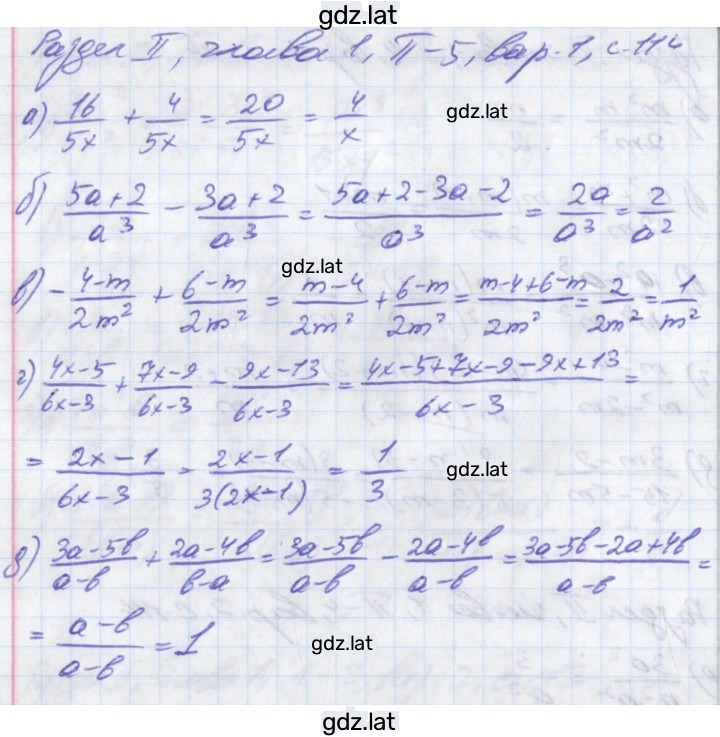 gdz.lat
Раздел II, глава 1, П-5, вар.1, с.114
а) 16/5x + 4/5x = 20/5x = 4/x gdz.lat
б) (5a+2)/a³ - (3a+2)/a³ = (5a+2-3a-2)/a³ = 2a/a³ = 2/a²
gdz.lat
в) -(4-m)/2m² + (6-m)/2m² = (m-4)/2m² + (6-m)/2m² = (m-4+6-m)/2m² = 2/2m² = 1/m²
г) (4x-5)/(6x-3) + (7x-9)/(6x-3) - (9x-13)/(6x-3) = (4x-5+7x-9-9x+13)/(6x-3) =
= (2x-1)/(6x-3) = (2x-1)/3(2x-1) = 1/3 gdz.lat
д) (3a-5b)/(a-b) + (2a-4b)/(b-a) = (3a-5b)/(a-b) - (2a-4b)/(a-b) = (3a-5b-2a+4b)/(a-b) =
= (a-b)/(a-b) = 1 gdz.lat
gdz.lat